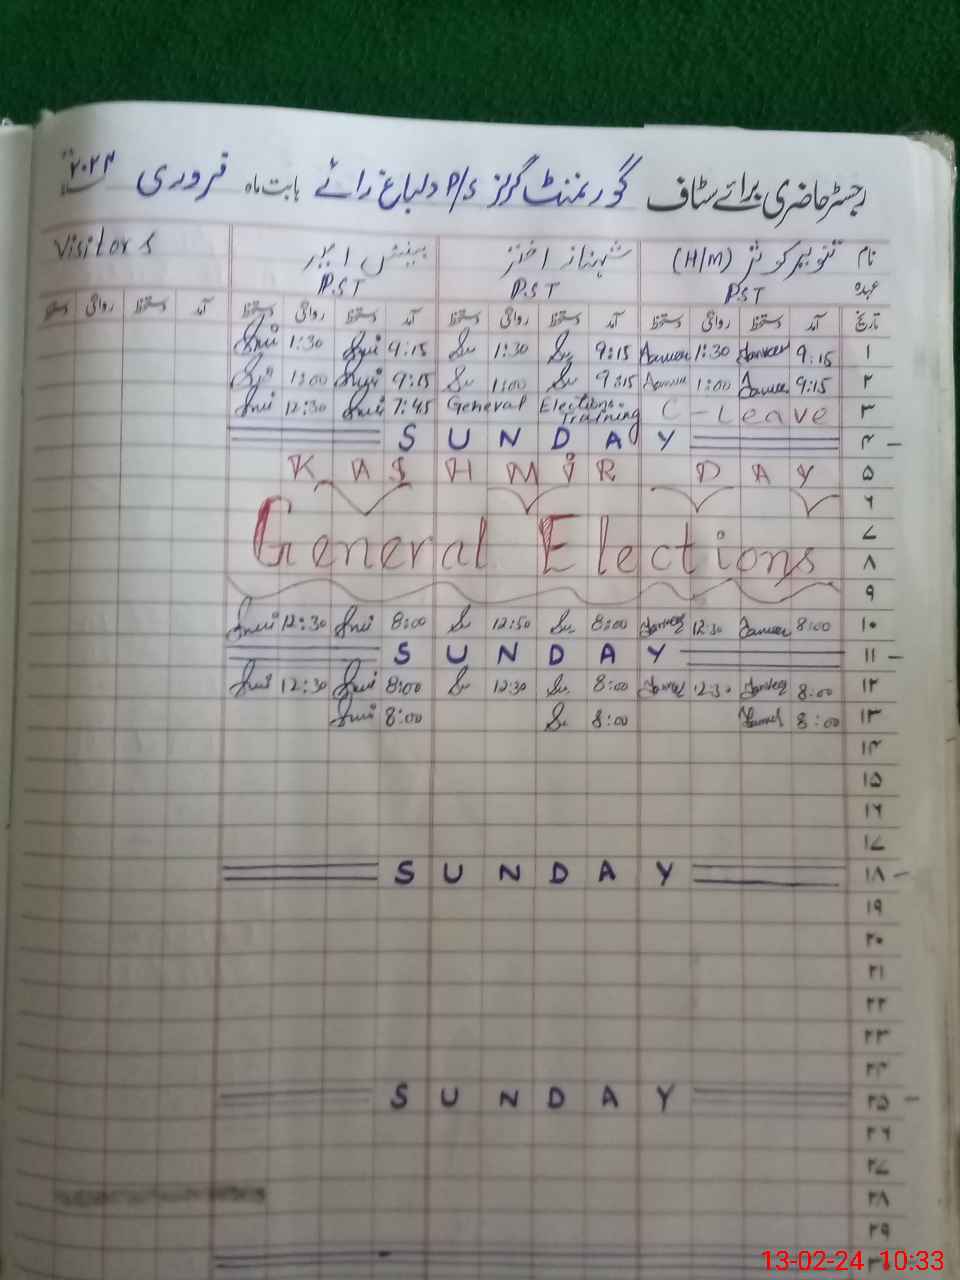 رجسٹر حاضری برائے سٹاف گورنمنٹ گرلز P/S دلباغ رائے بابت ماہ فروری ۲۰۲۴
نام (H/M) شہناز اختر Visitors
عہدہ P.S.T P.S.T P.S.T
تاریخ آمد دستخط روانگی دستخط آمد دستخط روانگی دستخط آمد دستخط روانگی دستخط آمد دستخط روانگی دستخط
۱ 9:15 Tanveer 1:30 Tanveer 9:15 1:30 9:15 1:30
۲ 9:15 Tanveer 1:00 9:15 1:00 9:15 1:00
۳ C-Leave General Elections Training 7:45 12:30
۴ SUNDAY
۵ KASHMIR DAY
۶
۷
۸ General Elections
۹
۱۰ 8:00 Tanveer 12:30 Tanveer 8:00 12:30 8:00 12:30
۱۱ SUNDAY
۱۲ 8:00 Tanveer 12:30 Tanveer 8:00 12:30 8:00 12:30
۱۳ 8:00 8:00 8:00
۱۴
۱۵
۱۶
۱۷
۱۸ SUNDAY
۱۹
۲۰
۲۱
۲۲
۲۳
۲۴
۲۵ SUNDAY
۲۶
۲۷
۲۸
۲۹
13-02-24 10:33